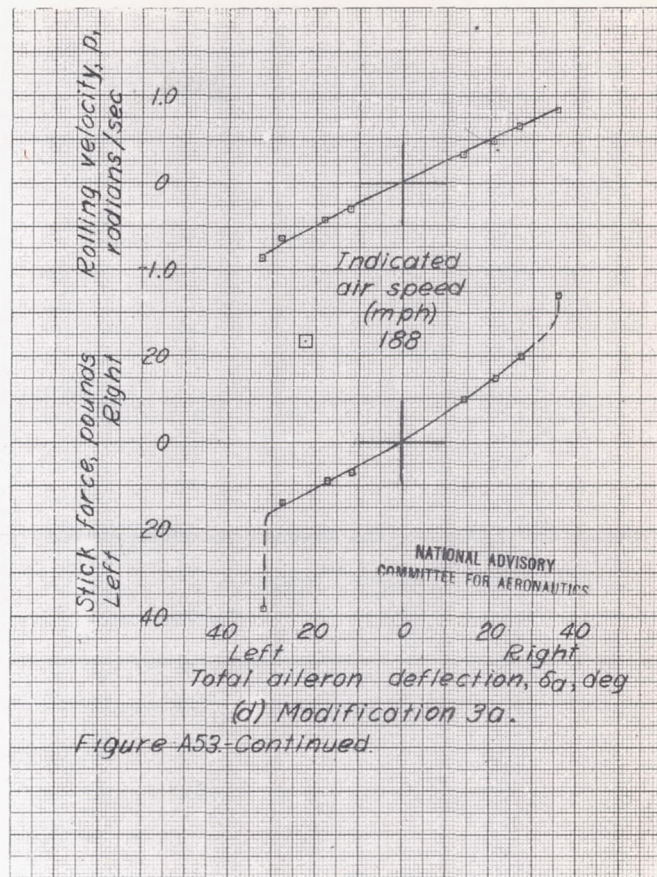 Rolling velocity, p,
radians/sec
1.0
0
-1.0
Indicated
air speed
(mph)
188
Stick force, pounds
Left Right
20
0
20
40
NATIONAL ADVISORY
COMMITTEE FOR AERONAUTICS
40 20 0 20 40
Left Right
Total aileron deflection, δa, deg
(d) Modification 3a.
Figure A53.-Continued.